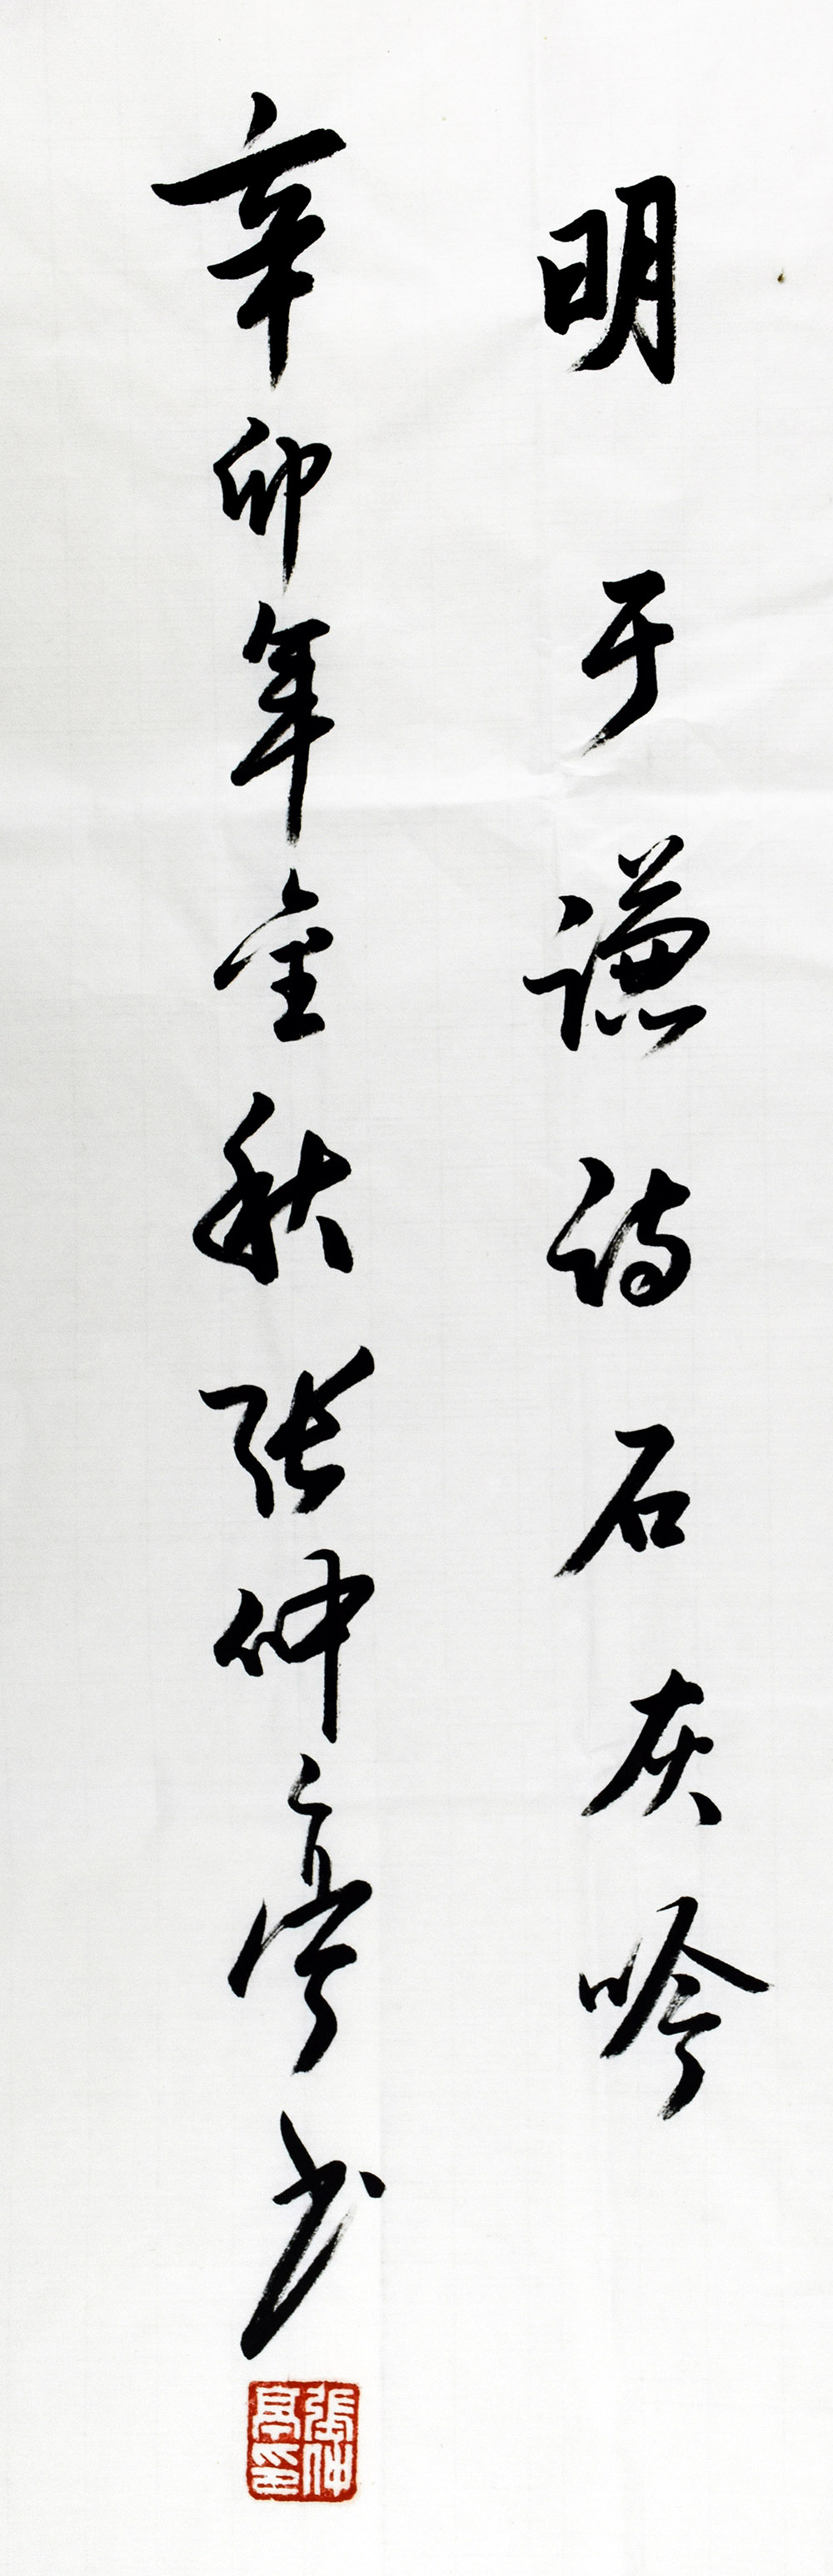 明于谦诗石灰吟
辛卯年金秋张仲亭书
張仲
亭印